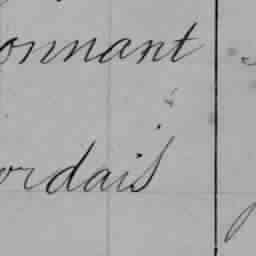 onnant
ordais